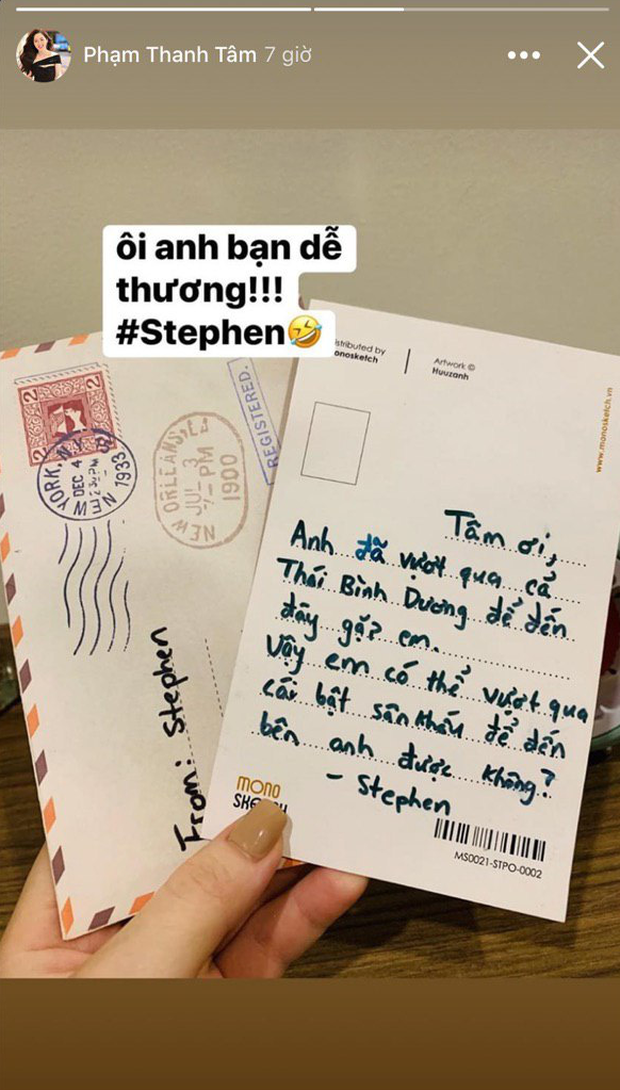 Phạm Thanh Tâm 7 giờ
ôi anh bạn dễ
thương!!!
#Stephen🤣
Artwork ©
Huuzanh
www.monosketch.vn
2 2
YORK, N.Y.
DEC 4
1933
REGISTERED.
NEW ORLEANS, LA
JUL 3
-PM
1900
From: Stephen
Tâm ơi,
Anh đã vượt qua cả
Thái Bình Dương để đến
đây gặp em.
Vậy em có thể vượt qua
cái bật sân khấu để đến
bên anh được không?
- Stephen
MONO
MS0021-STPO-0002